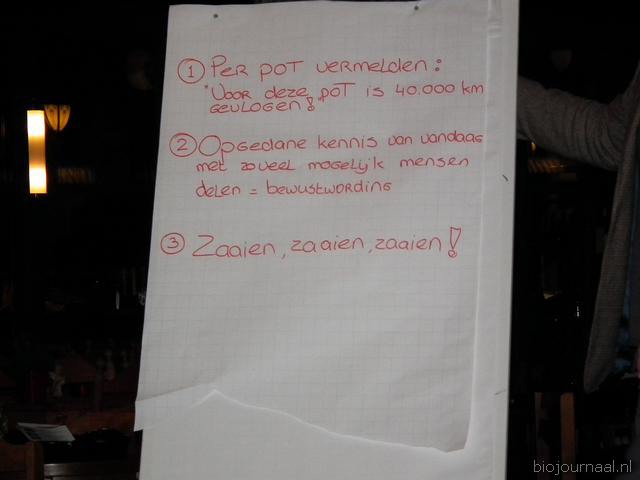 ① Per pot vermelden:
"Voor deze pot is 40.000 km
gevlogen!"
② Opgedane kennis van vandaag
met zoveel mogelijk mensen
delen = bewustwording
③ Zaaien, zaaien, zaaien!
biojournaal.nl